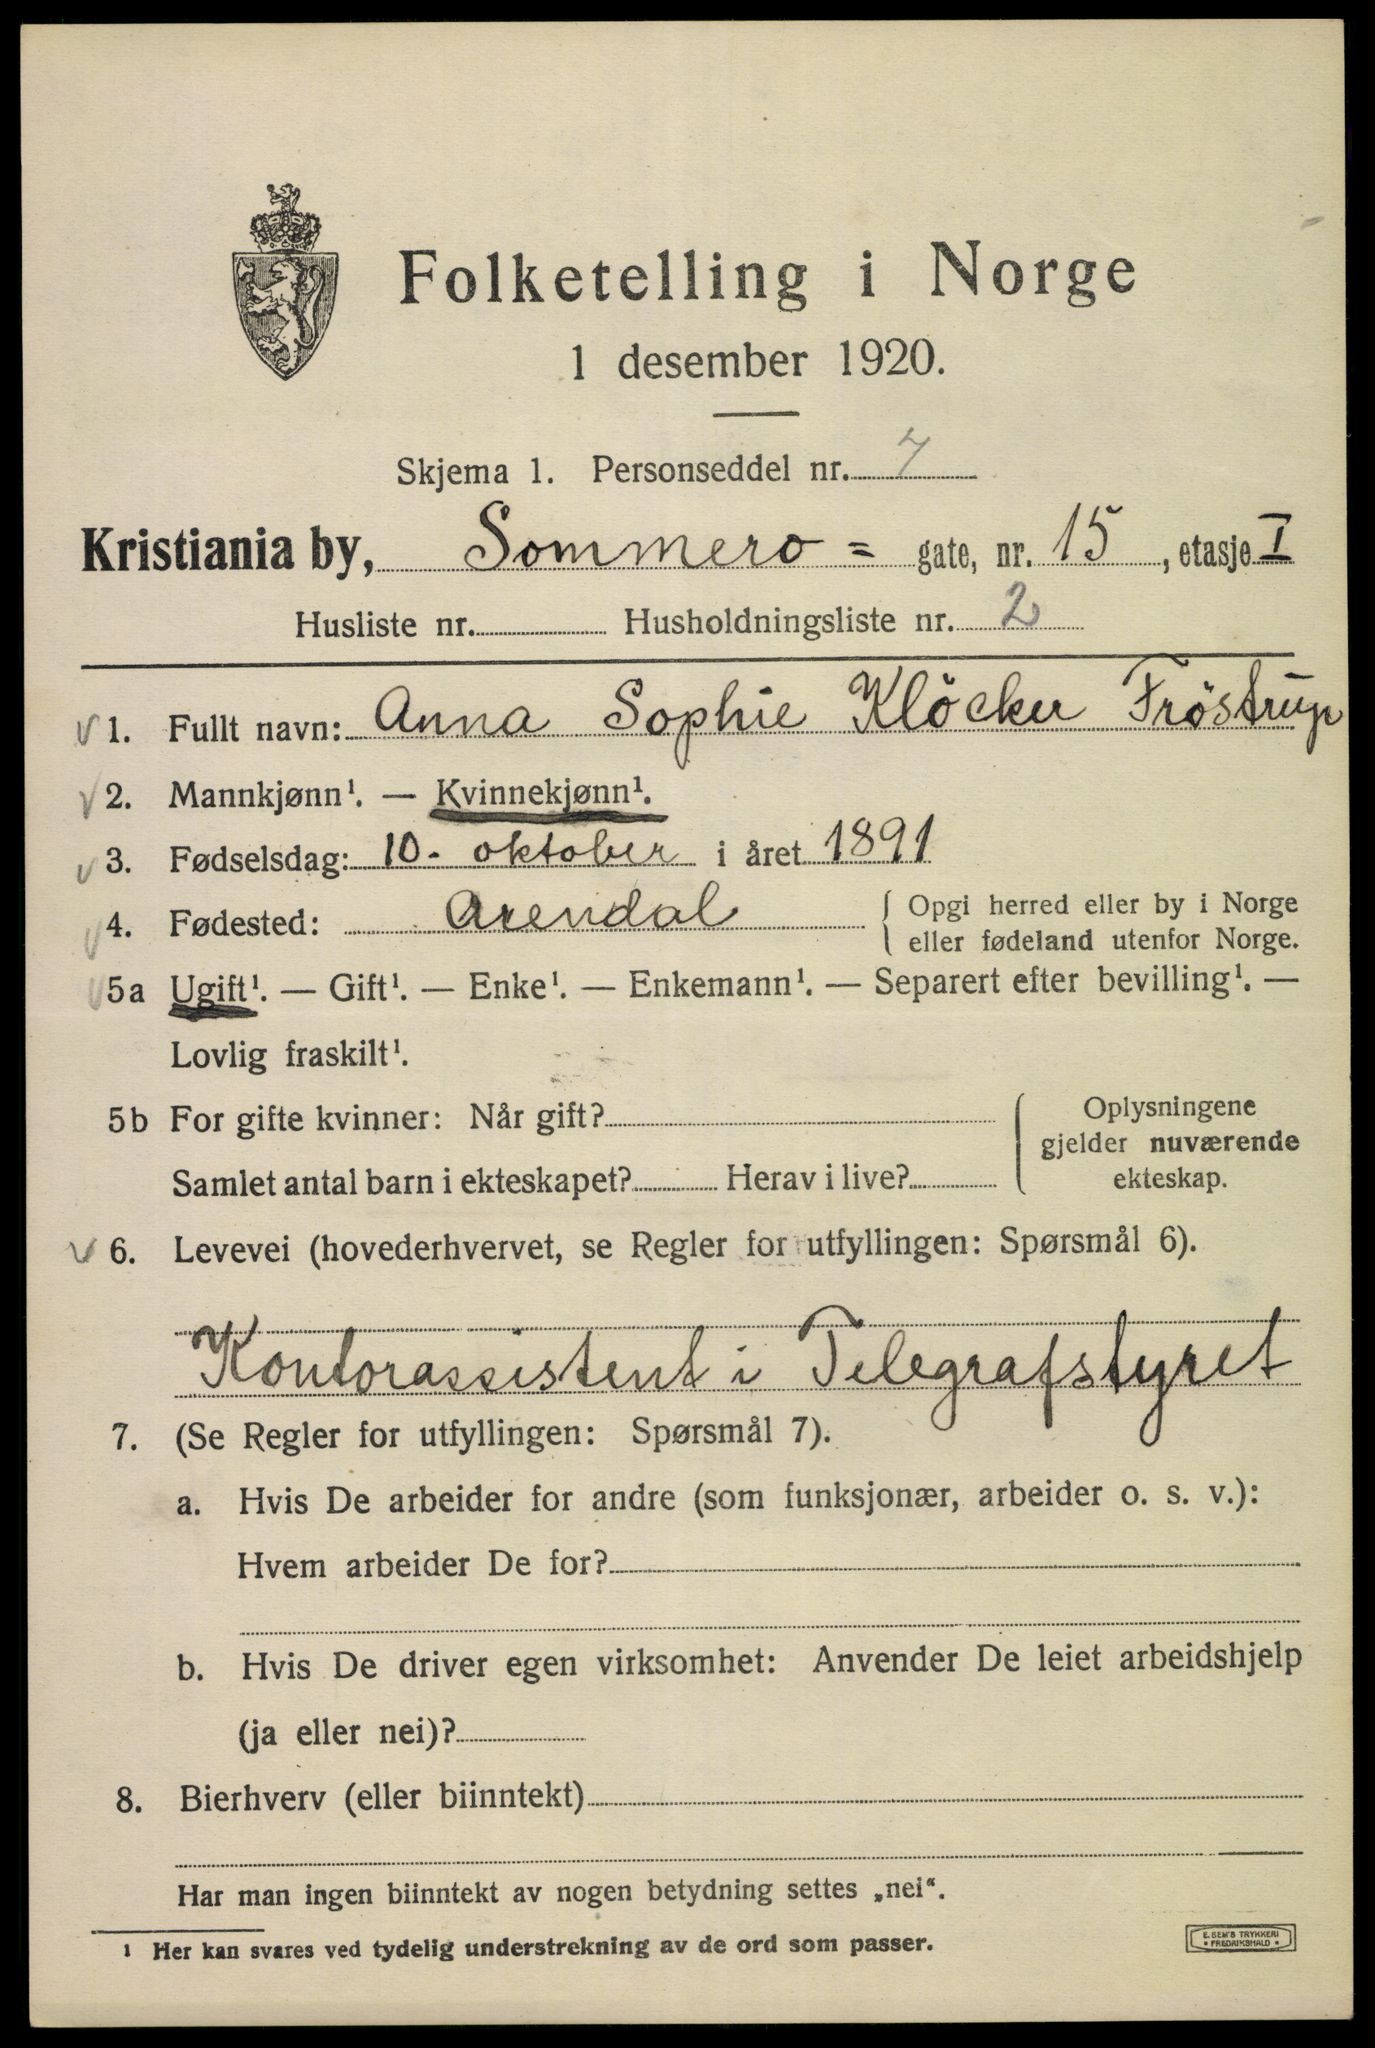 Folketelling i Norge
1 desember 1920.
Skjema 1. Personseddel nr. 7
Kristiania by, Sommero = gate, nr. 15, etasje I
Husliste nr. Husholdningsliste nr. 2
✓ 1. Fullt navn: Anna Sophie Klöcker Fröstrup
✓ 2. Mannkjønn¹. — Kvinnekjønn¹.
✓ 3. Fødselsdag: 10. oktober i året 1891
✓ 4. Fødested: Arendal { Opgi herred eller by i Norge
eller fødeland utenfor Norge.
✓ 5a Ugift¹. — Gift¹. — Enke¹. — Enkemann¹. — Separert efter bevilling¹. —
Lovlig fraskilt¹.
5b For gifte kvinner: Når gift? { Oplysningene
gjelder nuværende
Samlet antal barn i ekteskapet? Herav i live? ekteskap.
✓ 6. Levevei (hovederhvervet, se Regler for utfyllingen: Spørsmål 6).
Kontorassistent i Telegrafstyret
7. (Se Regler for utfyllingen: Spørsmål 7).
a. Hvis De arbeider for andre (som funksjonær, arbeider o. s. v.):
Hvem arbeider De for?
b. Hvis De driver egen virksomhet: Anvender De leiet arbeidshjelp
(ja eller nei)?
8. Bierhverv (eller biinntekt)
Har man ingen biinntekt av nogen betydning settes „nei“.
1 Her kan svares ved tydelig understrekning av de ord som passer.
E. SEM'S TRYKKERI
• FREDRIKSHALD •